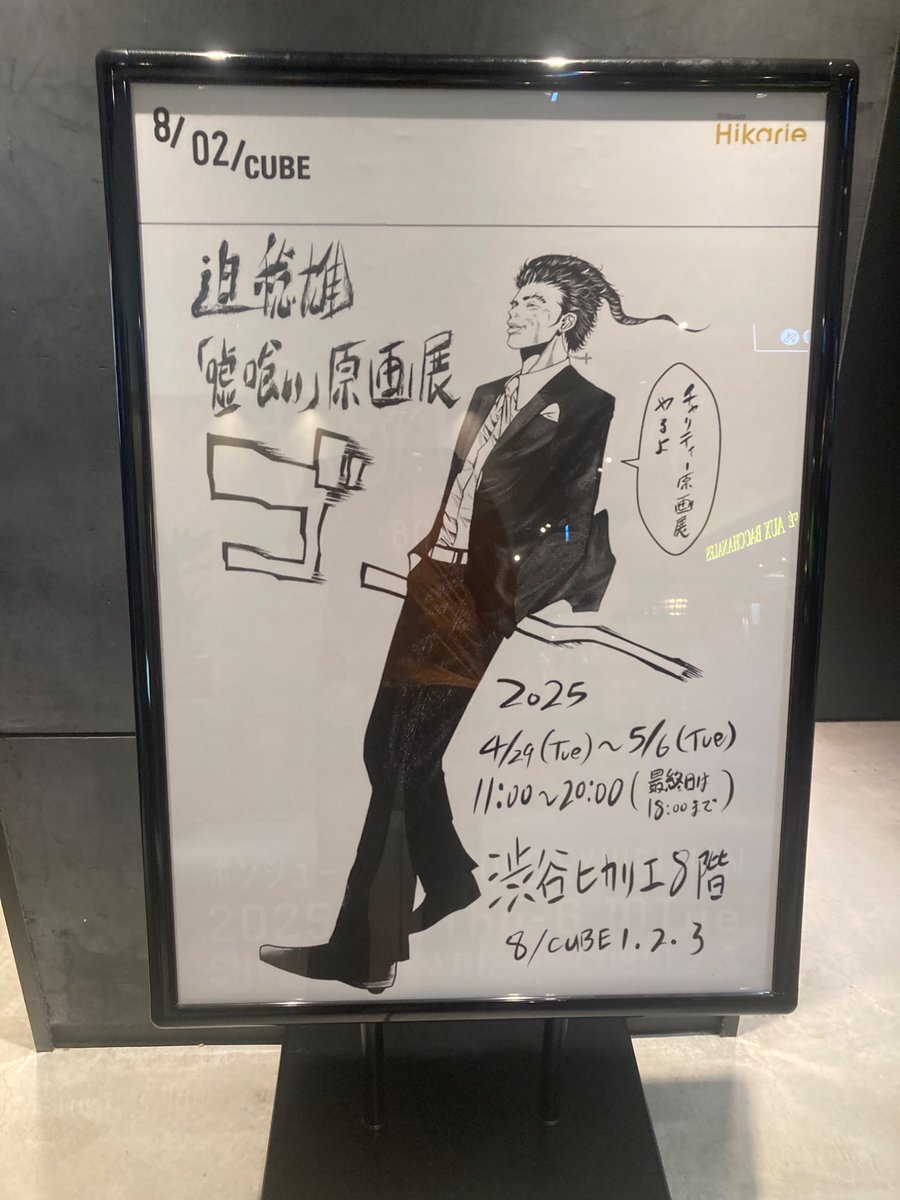 8/02/CUBE
Shibuya
Hikarie
迫稔雄
「嘘喰い」原画展
ゴ
チャリティー原画展
やるよ
2025
4/29(Tue)～5/6(Tue)
11:00～20:00(最終日は
18:00まで)
渋谷ヒカリエ8階
8/CUBE1.2.3
AUX BACCHANALES